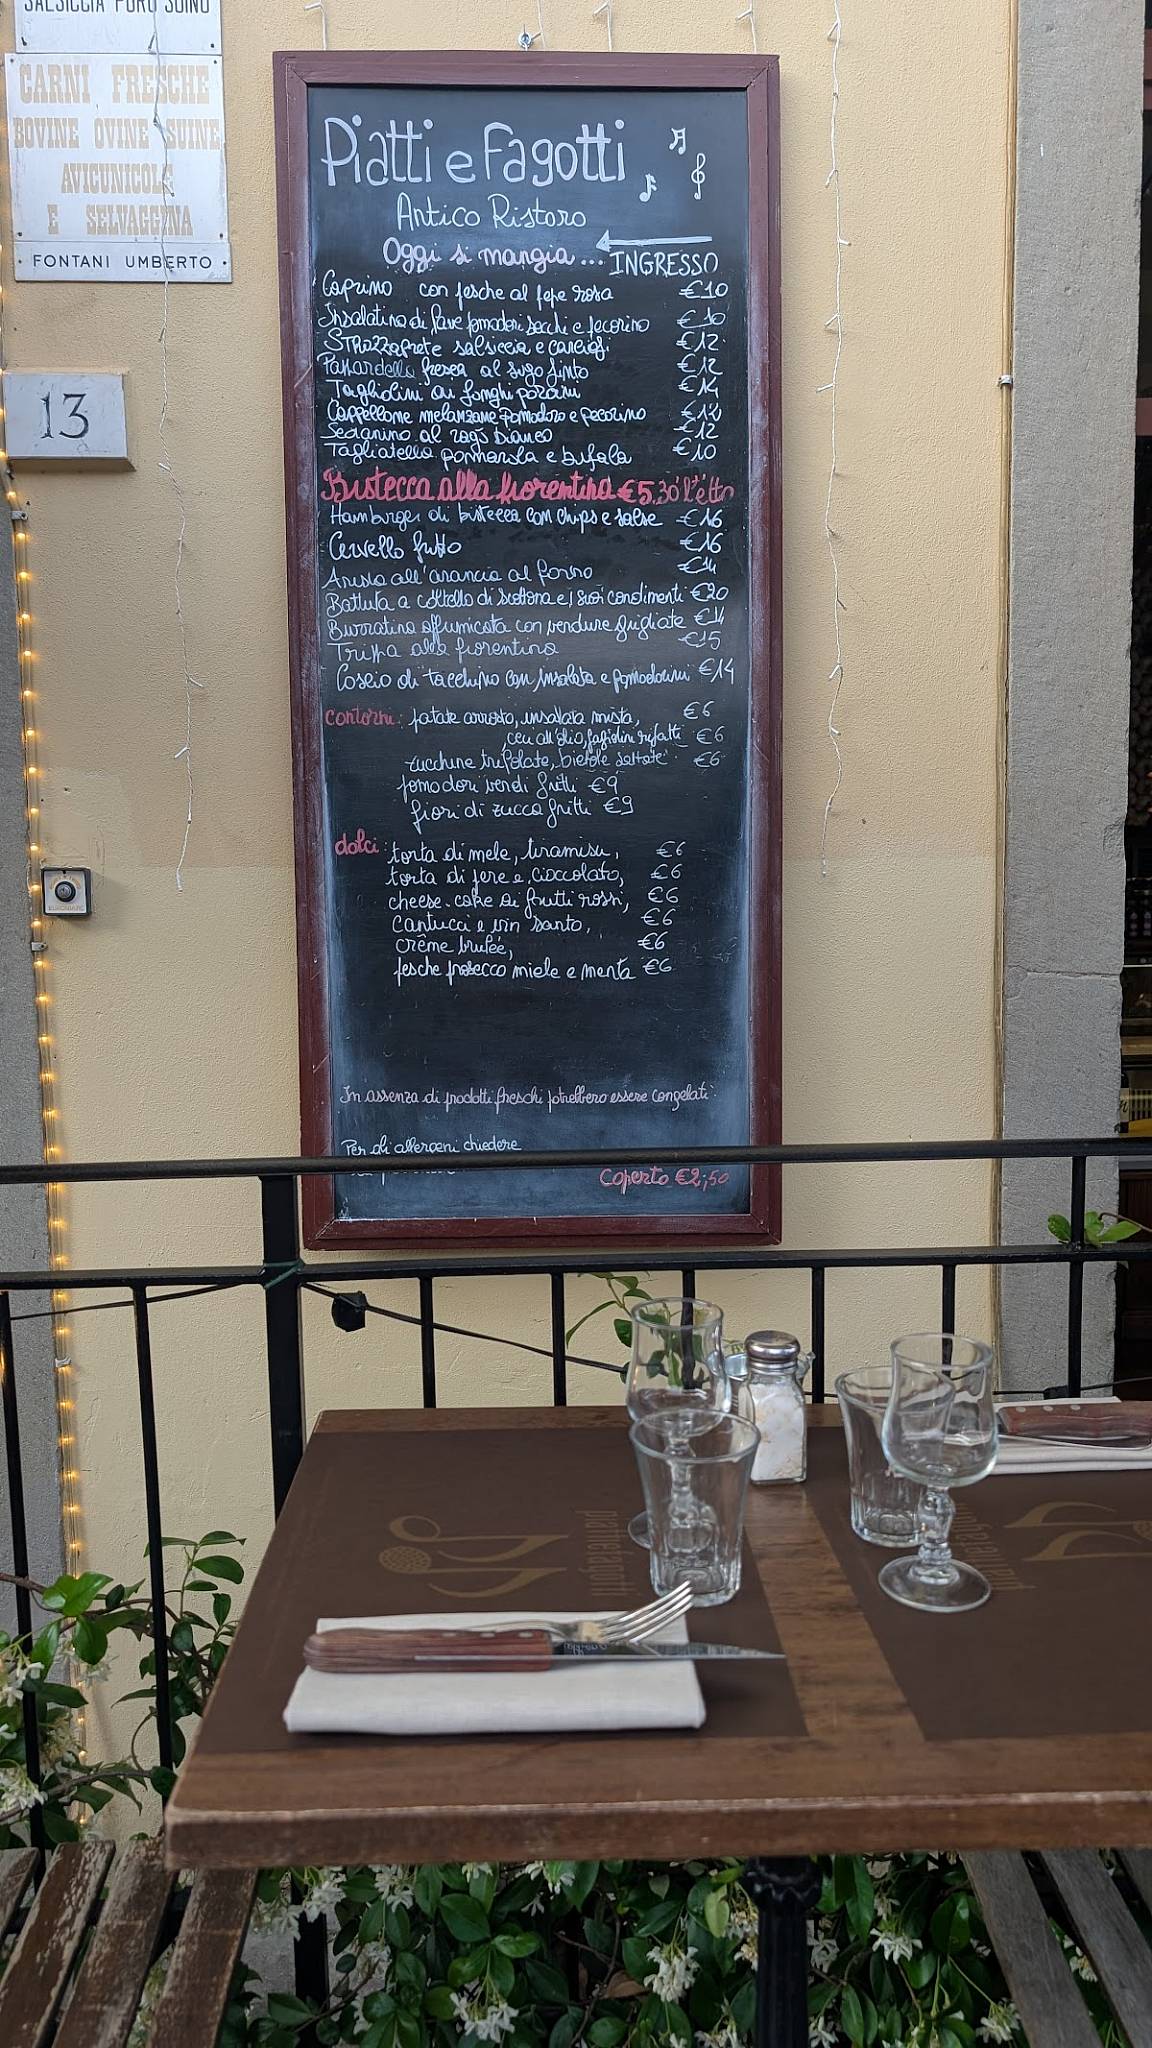 SALSICCIA PURO SUINO
CARNI FRESCHE
BOVINE OVINE SUINE
AVICUNICOLE
E SELVAGGINA
FONTANI UMBERTO
13
Piatti e Fagotti
Antico Ristoro
Oggi si mangia... INGRESSO
Caprino con pesche al pepe rosa €10
Insalatina di fave pomodori secchi e pecorino €10
Strozzaprete salsiccia e carciofi €12
Pappardella fresca al sugo finto €12
Tagliolini ai funghi porcini €14
Cappellone melanzane pomodoro e pecorino €12
Sedanino al ragù bianco €12
Tagliatella pommarola e bufala €10
Bistecca alla fiorentina €5.30 l'etto
Hamburger di bistecca con chips e salse €16
Cervello fritto €16
Arista all'arancia al forno €14
Battuta a coltello di scottona e i suoi condimenti €20
Burratina affumicata con verdure grigliate €14
Trippa alla fiorentina €15
Coscio di tacchino con insalata e pomodorini €14
contorni: patate arrosto, insalata mista, €6
ceci all'olio, fagiolini rifatti €6
zucchine trifolate, bietole saltate €6
pomodori verdi fritti €9
fiori di zucca fritti €9
dolci: torta di mele, tiramisu, €6
torta di pere e cioccolato, €6
cheese-cake ai frutti rossi, €6
Cantucci e vin santo, €6
crême brulée, €6
pesche prosecco miele e menta €6
In assenza di prodotti freschi potrebbero essere congelati
Per gli allergeni chiedere
coperto €2,50